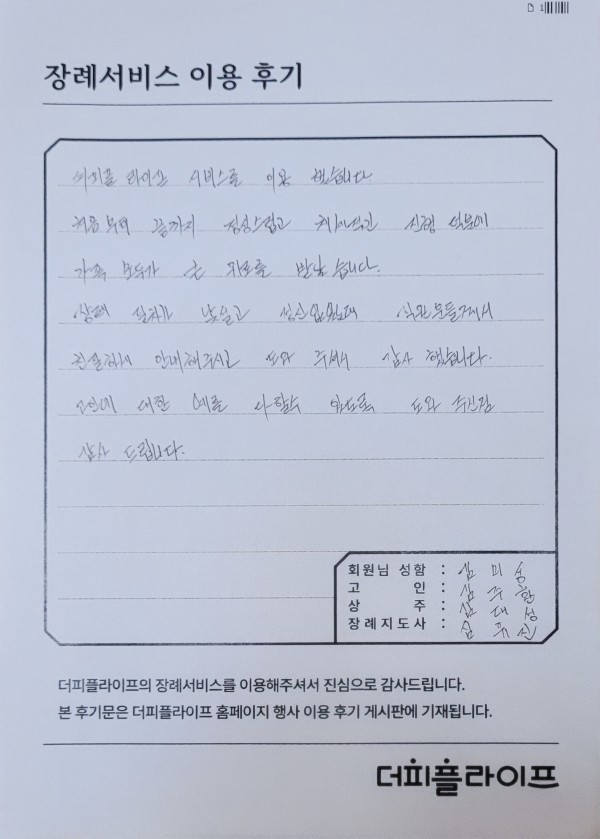 장례서비스 이용 후기
더피플 라이프 서비스를 이용 했습니다.
처음부터 끝까지 정성스럽고 체계적인 진행 덕분에
가족 모두가 큰 위로를 받았습니다.
상례 절차가 낯설고 정신없었는데 직원분들께서
친절하게 안내해주시고 도와 주셔서 감사 했습니다.
고인에 대한 예를 다할수 있도록 도와 주신점
감사 드립니다.
회원님 성함 : 심 미 송
고 인 : 심 주 환
상 주 : 심 대 성
장례지도사 : 심
더피플라이프의 장례서비스를 이용해주셔서 진심으로 감사드립니다.
본 후기문은 더피플라이프 홈페이지 행사 이용 후기 게시판에 기재됩니다.
더피플라이프